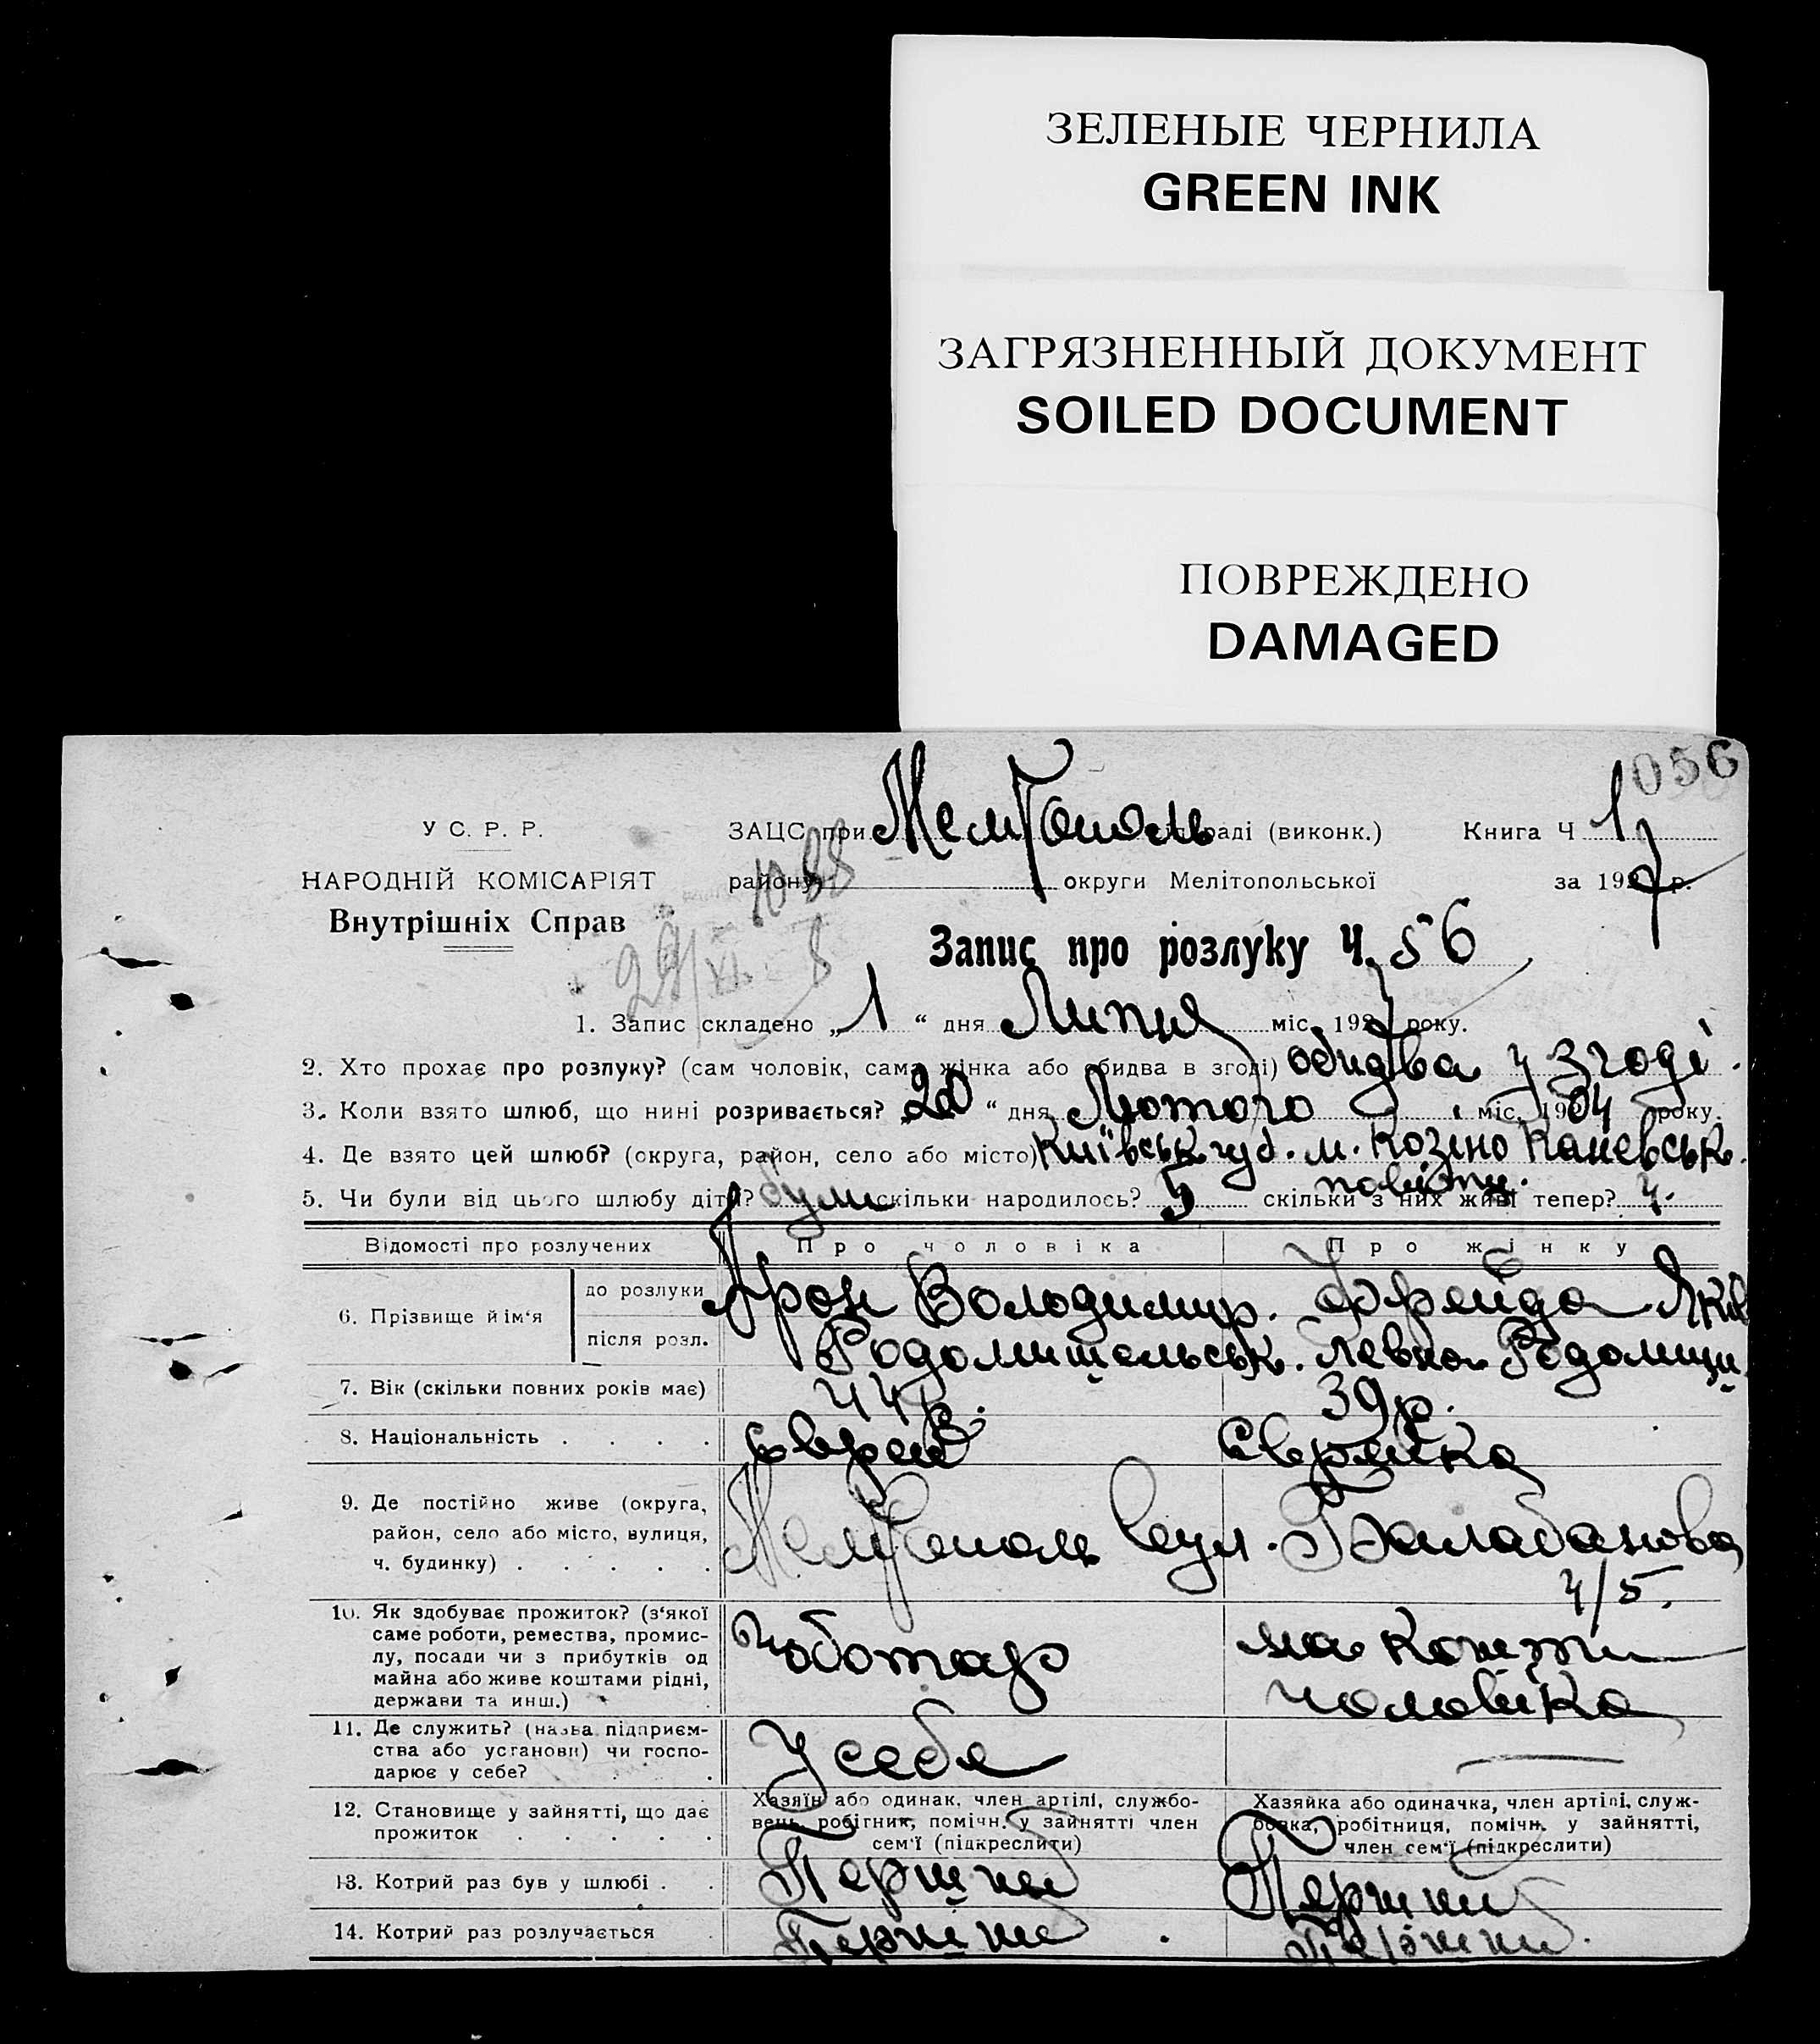 ЗЕЛЕНЫЕ ЧЕРНИЛА
GREEN INK
ЗАГРЯЗНЕННЫЙ ДОКУМЕНТ
SOILED DOCUMENT
ПОВРЕЖДЕНО
DAMAGED
056
У С. Р. Р.
НАРОДНІЙ КОМІСАРІЯТ
Внутрішніх Справ
ЗАЦС при Мелітополь раді (виконк.) Книга Ч 1
району округи Мелітопольської за 1927 р.
1088
29/XI
Запис про розлуку Ч. 56
1. Запис складено „1“ дня Липня міс. 1927 року.
2. Хто прохає про розлуку? (сам чоловік, сама жінка або обидва в згоді) обидва у згоді.
3. Коли взято шлюб, що нині розривається? „20“ дня Лютого міс. 1904 року.
4. Де взято цей шлюб? (округа, район, село або місто) Київськ губ. м. Козіно Каневськ.
повіту.
5. Чи були від цього шлюбу діти? були скільки народилось? 5 скільки з них живі тепер? 4.
Відомості про розлучених
Про чоловіка
Про жінку
6. Прізвище й ім‘я
до розлуки
після розл.
Арон Володимир. Фрейда Яків
Родомишельськ. левна Родомиши
7. Вік (скільки повних років має) 44 р. 39 р.
8. Національність . . . . Єврей Єврейка
9. Де постійно живе (округа,
район, село або місто, вулиця,
ч. будинку) . . . . .
Мелітополь вул. Балабанова
4/5.
10. Як здобуває прожиток? (з‘якої
саме роботи, ремества, промис-
лу, посади чи з прибутків од
майна або живе коштами рідні,
держави та инш.)
Чоботар
на кошти
чоловіка
11. Де служить? (назва підприєм-
ства або установи) чи госпо-
дарює у себе? .
У себе
12. Становище у зайнятті, що дає
прожиток . . . . .
Хазяїн або одинак, член артілі, службо-
вець, робітник, помічн. у зайнятті член
сем‘ї (підкреслити)
Хазяйка або одиначка, член артілі, служ-
бовка, робітниця, помічн. у зайнятті,
член сем‘ї (підкреслити)
13. Котрий раз був у шлюбі . . Перший Перший
14. Котрий раз розлучається . Перший Перший.